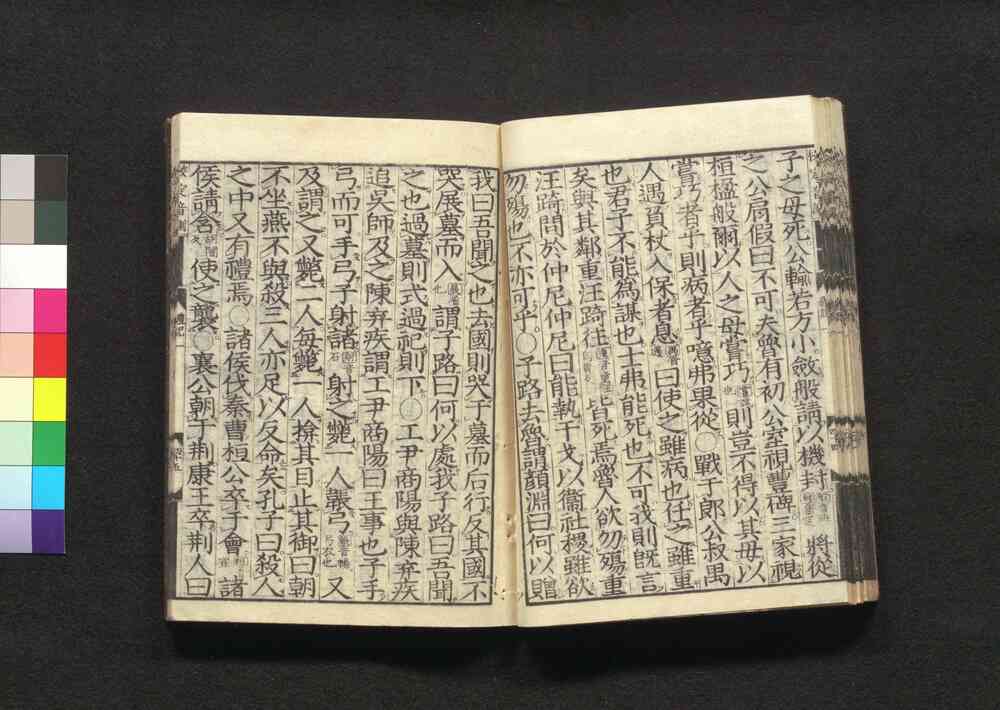 子之母死公輸若方小斂般請以機封將從
之公肩假曰不可夫魯有初公室視豐碑三家視
桓楹般爾以人之母嘗巧則豈不得以其母以
嘗巧者乎則病者乎噫弗果從〇戰于郎公叔禺
人遇負杖入保者息曰使之雖病也任之雖重
也君子不能為謀也士弗能死也不可我則既言
矣與其鄰重汪踦往皆死焉魯人欲勿殤重
汪踦問於仲尼仲尼曰能執干戈以衞社稷雖欲
勿殤也不亦可乎〇子路去魯謂顏淵曰何以贈
我曰吾聞之也去國則哭于墓而后行反其國不
哭展墓而入謂子路曰何以處我子路曰吾聞
之也過墓則式過祀則下〇工尹商陽與陳弃疾
追吳師及之陳弃疾謂工尹商陽曰王事也子手
弓而可手弓子射諸射之斃一人韔弓又
及謂之又斃二人每斃一人揜其目止其御曰朝
不坐燕不與殺三人亦足以反命矣孔子曰殺人
之中又有禮焉〇諸侯伐秦曹桓公卒于會諸
侯請含使之襲〇襄公朝于荆康王卒荆人曰